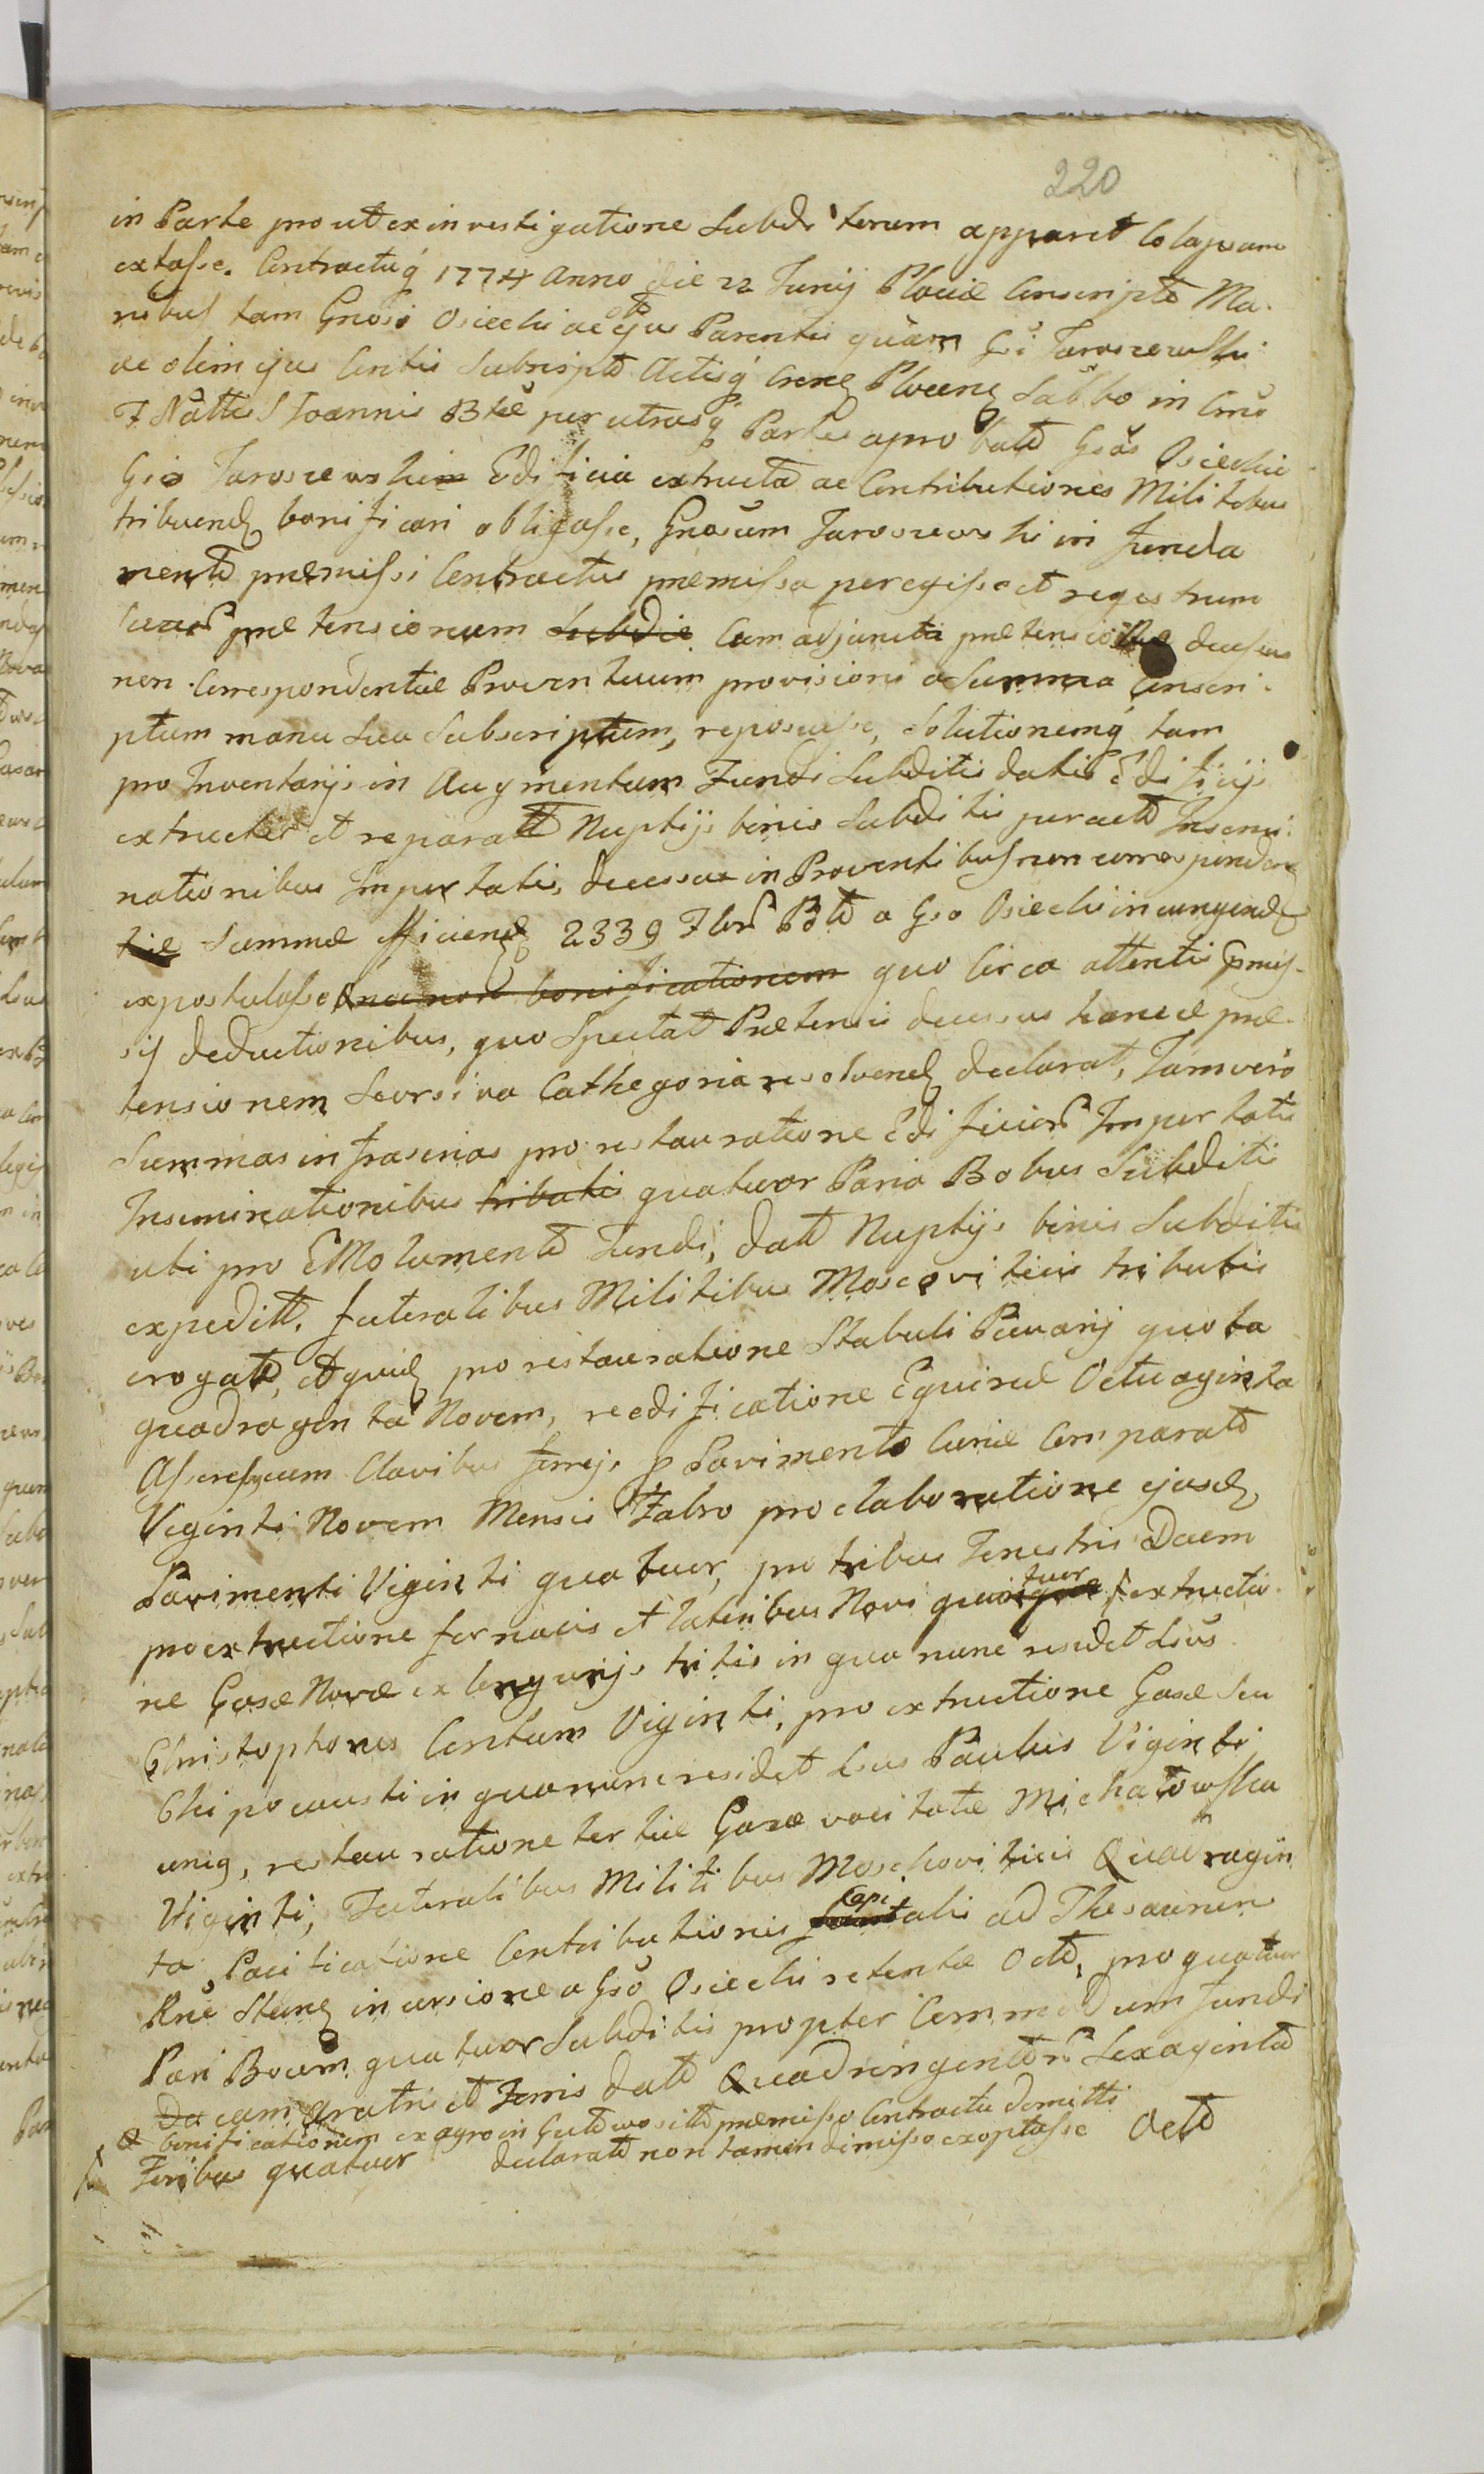 220
in Parte prout ex investigatione Subditorum apparet Colapsam
extasse. Contractuq 1774 Anno die 22 Junij Plociæ Conscripto Ma-
nibus tam Gnosi Osiecki ac ejus Parentis quam Gsi Jaroszewski
ac olim ejus Contis Subscripto Actisq Cren Plocen Sabbo in Crno
F Nattis S Joannis Btæ per utrasq Partes aprobato Gsos Osieckie
Gsis Jaroszewskim Edificia extructa ac Contributiones Militibus
tribuend bonificari obligasse, Gnosum Jaroszewski in funda
mento præmissi Contractus præmissa peregisse et regestrum
suar prætensionum Subdit Cum adjuncta prætensione decessus
non Correspondentiæ Proventuum provisioni a Summa Conscri-
ptum manu sua Subscriptum, reposuisse, Solutionemq tam
pro Inventarijs in Augmentum Fundi Subditis datis Edificijs
extructis et reparat Nuptijs binis Subditis peract Insemi-
nationibus Importatis, decessu in Proventibus non correspinden
tiæ Summæ efficiend 2339 Flor Pol a Gso Osiecki injungend
expostulasse nec non bonificationem quo Circa attentis præmis-
sis deductionibus, quo Spectat Prætensi decessus hancce præ-
tensionem Seorsiva Cathegoria resolvend declarat, Jam vero
Summas infrascrias pro restauratione Edificior Importatis
Inseminationibus tributis quatuor Paria Bobus Subditis
uti pro EMolumento Fundi, dat Nuptijs binis Subditis
expedit. futeralibus Militibus Moscoviticis tributis
erogato, et quid pro restauratione Stabuli Pecuarij quota
quadraginta Novem, reedificatione Equiruæ Octuaginta
Asseresq cum Clavibus ferreis p Pavimento Curiæ Comparat
Viginti Novem Mensis Fabro pro elaboratione ejusd,
Pavimenti Viginti quatuor, pro tribus Fenestris Duem
pro extructione fornacis et lateribus Novi quatuor extructio-
ne Gasæ Novæ ex longurijs tritis in qua nunc residet Lsus
Christophorus Centum Viginti, pro extructione Gasæ seu
Chipocausti in qua nunc residet Lsus Paulus Viginti
unig, restauratione tertiæ Gasæ vocitatæ Michałowska
Viginti, Futeralibus Militibus Moschoviticis Quadragin
ta, Pacificatione Contributionis Capitalis ad Thesaurum
Rne Stan incursione a Gso Osiecki retentæ Octo, pro quatuor
Pari Boum quatuor Subditis propter Commodum fundi
Da cum aratris et Ferris dato Quadringentor Sexaginta
Octo
bonificationem ex agro in præmisso Contractu dimitti
declarato non tamen dimisso exoptasse
Foribus quatuor